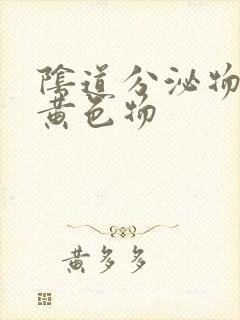 陰道分泌物
黄色物
黄多多